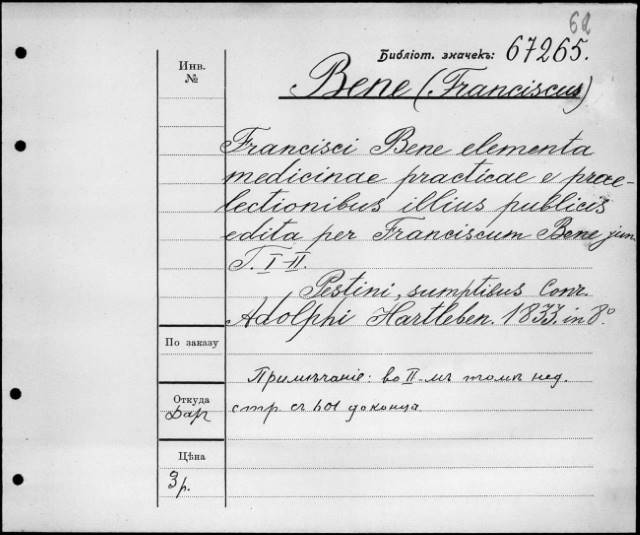 62
Библіот. значекъ: 67265.
Инв.
№
Bene (Franciscus)
Francisci Bene elementa
medicinae practicae e prae-
lectionibus illius publicis
edita per Franciscum Bene jun.
T. I-II.
Pestini, sumptibus Conr.
Adolphi Hartleben. 1833. in 8º.
По заказу
Примѣчаніе: во II-мъ томѣ нед.
Откуда
Дар
стр. съ 401 до конца.
Цѣна
3 р.